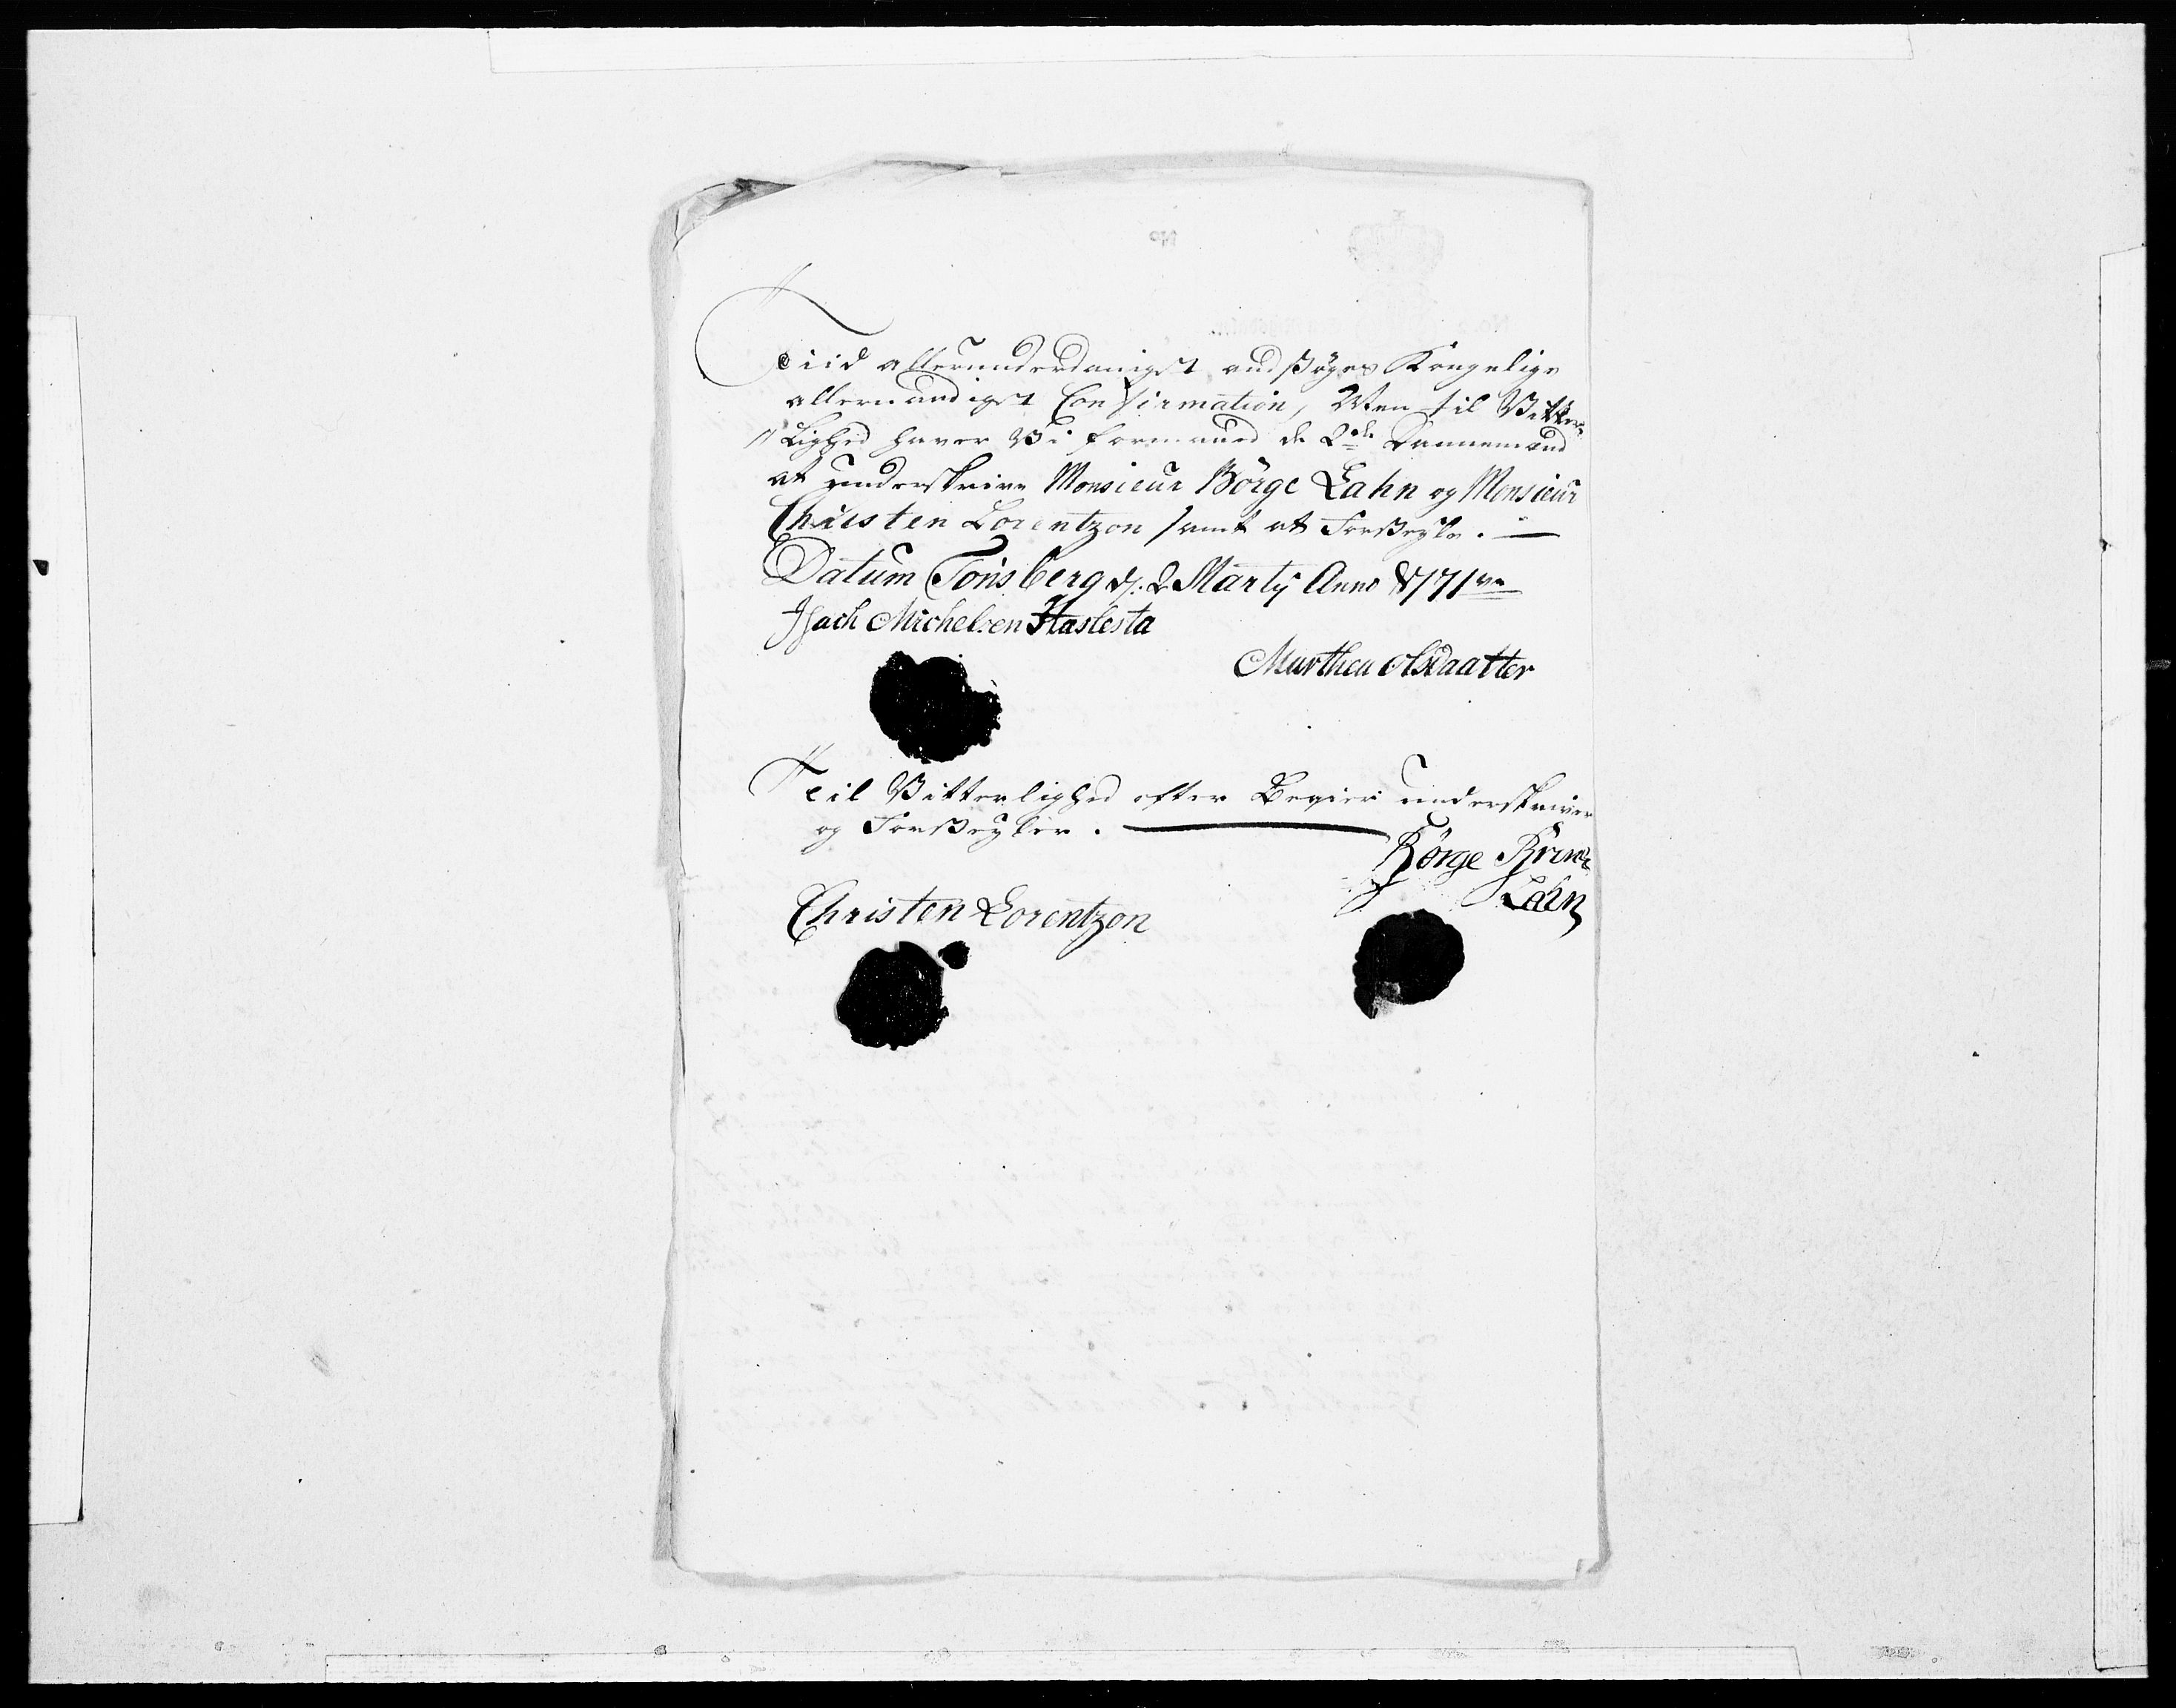 Tiid allerunderdanigst andsøges Kongelige
allernaadigst Confirmation, Men til Vitter-
"Lighed haver Vi formaaed de 2de Dannemænd
at underskrive Monsieur Börge Lahn og Monsieur
Christen Lorentzon samt at Forseyle. —
Datum Tönsberg d. 2 Martij Anno
Isach Michelsen Haslesta
Marthea Olsdaatter
Til Vitterlighed efter Begier underskriver
og Forseyler. —
Börge
Lahn
Christen Lorentzon